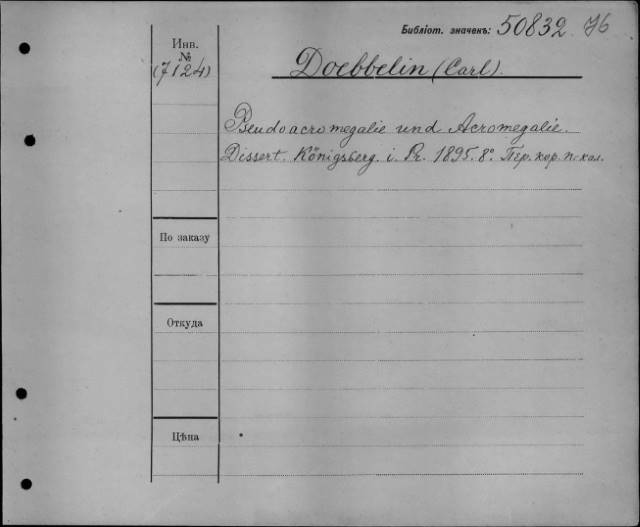 Библіот. значекъ: 50832 76
Инв.
№
(7124)
Doebbelin (Carl).
Pseudoacromegalie und Acromegalie.
Dissert. Königsberg. i. Pr. 1895. 8°. Пер. кор. п. кол.
По заказу
Откуда
Цѣна